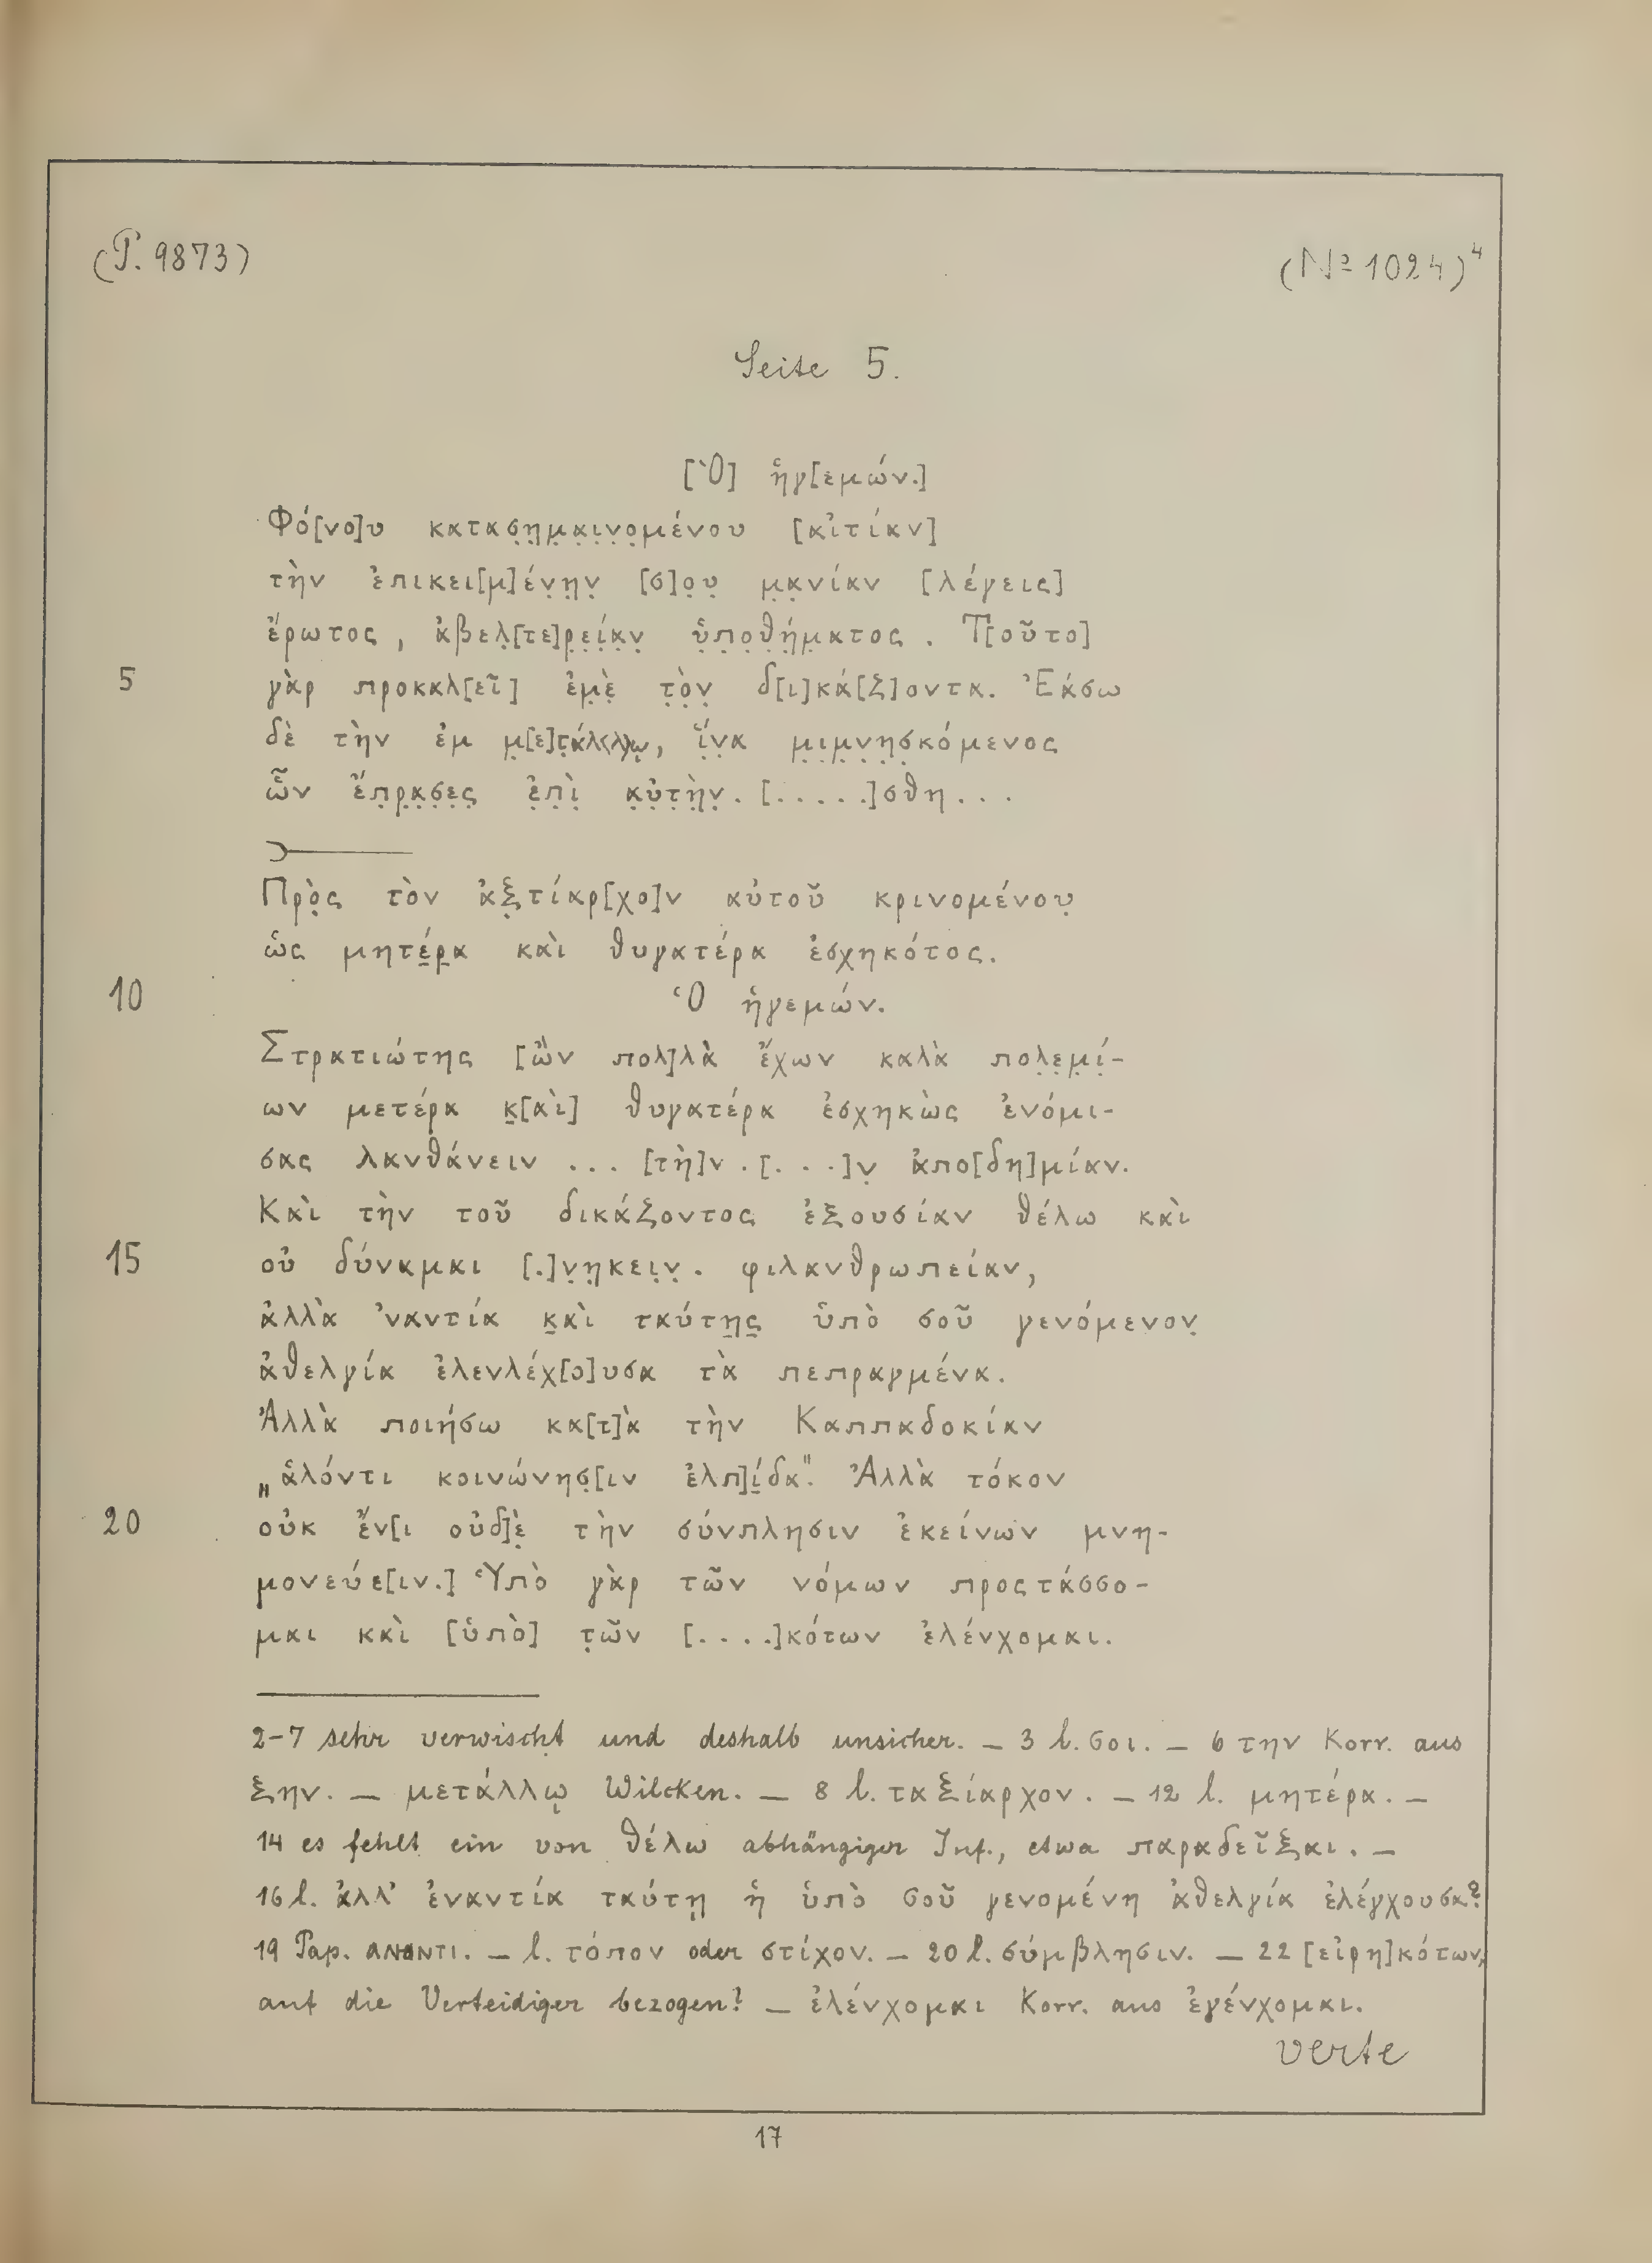 (P. 9873)
(Nº 1024)⁴
Seite 5.
[Ὁ] ἡγ[εμών.]
Φό[νο]υ κατασ̣η̣μ̣α̣ι̣ν̣ο̣μένου [αἰτίαν]
τὴν ἐπικει[μ]έν̣η̣ν̣ [σ]ο̣υ̣ μ̣α̣νίαν [λέγεις]
ἔρωτος, ἀβελ̣[τε]ρ̣ε̣ί̣α̣ν̣ ὑ̣π̣ο̣θ̣ή̣μ̣ατος. Τ[οῦτο]
5 γὰρ προκαλ[εῖ] ἐμ̣ὲ̣ τ̣ὸ̣ν̣ δ[ι]κά[ζ]οντα. Ἐάσω
δὲ τὴν ἐμ μ̣[ε]τ̣άλ⟨λ⟩ῳ̣, ἵ̣ν̣α μ̣ι̣μ̣ν̣η̣σ̣κόμενος
ὧν ἔπ̣ρ̣α̣σ̣ε̣ς̣ ἐ̣π̣ὶ̣ α̣ὐ̣τ̣ὴ̣ν̣. [.....]σθη...
Πρὸ̣ς τὸν ἀξ̣τίαρ[χο]ν αὐτοῦ κρινομένου̣
ὡς μητέ̣ρ̣α καὶ θυγατέρα ἐσχηκότος.
10 Ὁ ἡγεμών.
Στρατιώτης [ὢν πολ]λὰ ἔχων καλὰ πολ̣ε̣μ̣ί̣-
ων μετέρα κ̣[αὶ] θυγατέρα ἐσχηκὼς ἐνόμι-
σας λανθάνειν ... [τὴ]ν .[...]ν̣ ἀπο[δη]μίαν.
Καὶ τὴν τοῦ δικάζοντος ἐξουσίαν θέλω καὶ
15 οὐ δύναμαι [.]ν̣η̣κει̣ν̣. φιλανθρωπείαν,
ἀλλὰ ’ναντία κ̣αὶ ταύτη̣ς̣ ὑπὸ σοῦ γενόμενον̣
ἀθελγία ἐλενλέχ[ο]υσα τὰ πεπραγμένα.
Ἀλλὰ ποιήσω κα[τ]ὰ τὴν Καππαδοκίαν
„ἁλόντι κοινώνησ̣[ιν ἐλπ]ί̣δα“. Ἀλλὰ τόκον
20 οὐκ ἔν[ι οὐδ]ὲ̣ τὴν σύνπλησιν ἐκείνων μνη-
μονεύε[ιν.] Ὑπὸ γὰρ τῶν νόμων προςτάσσο-
μαι καὶ [ὑπὸ] τ̣ῶν [....]κότων ἐλένχομαι.
2-7 sehr verwischt und deshalb unsicher. — 3 l. σοι. — 6 την Korr. aus
ξην. — μετάλλῳ Wilcken. — 8 l. ταξίαρχον. — 12 l. μητέρα. —
14 es fehlt ein von θέλω abhängiger Inf., etwa παραδεῖξαι. —
16 l. ἀλλ’ ἐναντία ταύτῃ ἡ ὑπὸ σοῦ γενομένη ἀθελγία ἐλέγχουσα?
19 Pap. ΑΝΟΝΤΙ. — l. τόπον oder στίχον. — 20 l. σύμβλησιν. — 22 [εἰρη]κότων,
auf die Verteidiger bezogen? — ἐλένχομαι Korr. aus ἐγένχομαι.
verte
17